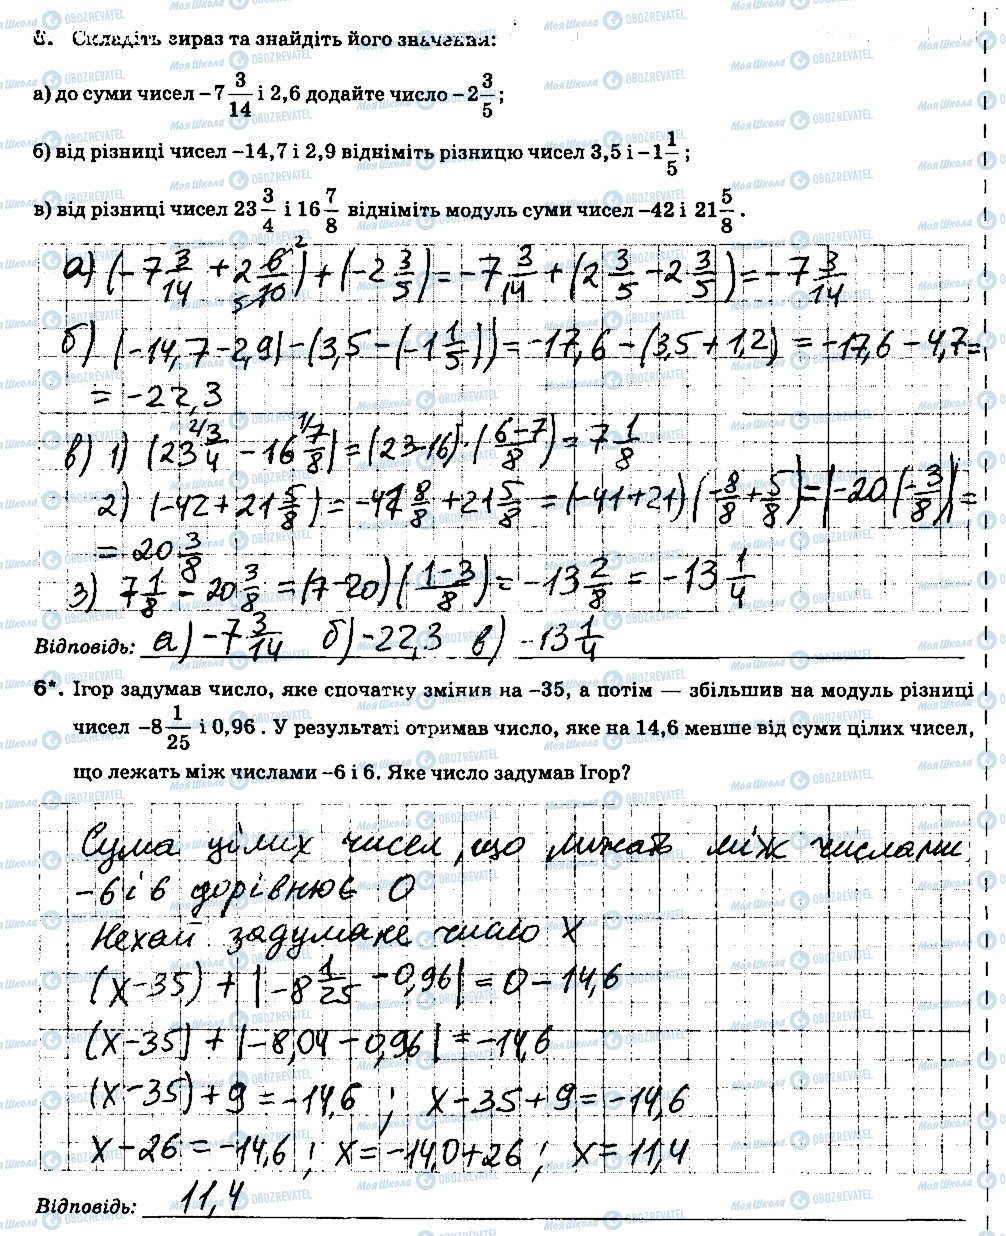 5. Складіть вираз та знайдіть його значення:
а) до суми чисел −7 3/14 і 2,6 додайте число −2 3/5;
б) від різниці чисел −14,7 і 2,9 відніміть різницю чисел 3,5 і −1 1/5;
в) від різниці чисел 23 3/4 і 16 7/8 відніміть модуль суми чисел −42 і 21 5/8.
а) (−7 3/14 + 2 6/10) + (−2 3/5) = −7 3/14 + (2 3/5 − 2 3/5) = −7 3/14
б) (−14,7 − 2,9) − (3,5 − (−1 1/5)) = −17,6 − (3,5 + 1,2) = −17,6 − 4,7 =
= −22,3
в) 1) (23 3/4 − 16 7/8) = (23−16) · (6−7/8) = 7 1/8
2) (−42 + 21 5/8) = −41 8/8 + 21 5/8 = (−41 + 21) (−8/8 + 5/8) = |−20 (−3/8)| =
= 20 3/8
3) 7 1/8 − 20 3/8 = (7−20) (1−3/8) = −13 2/8 = −13 1/4
Відповідь: а) −7 3/14 б) −22,3 в) −13 1/4
6*. Ігор задумав число, яке спочатку змінив на −35, а потім — збільшив на модуль різниці
чисел −8 1/25 і 0,96. У результаті отримав число, яке на 14,6 менше від суми цілих чисел,
що лежать між числами −6 і 6. Яке число задумав Ігор?
Сума цілих чисел, що лижать між числами
−6 і 6 дорівнює 0
Нехай задумане число X
(X − 35) + |−8 1/25 − 0,96| = 0 − 14,6
(X − 35) + |−8,04 − 0,96| = −14,6
(X − 35) + 9 = −14,6 ; X − 35 + 9 = −14,6
X − 26 = −14,6 ; X = −14,0 + 26 ; X = 11,4
Відповідь: 11,4